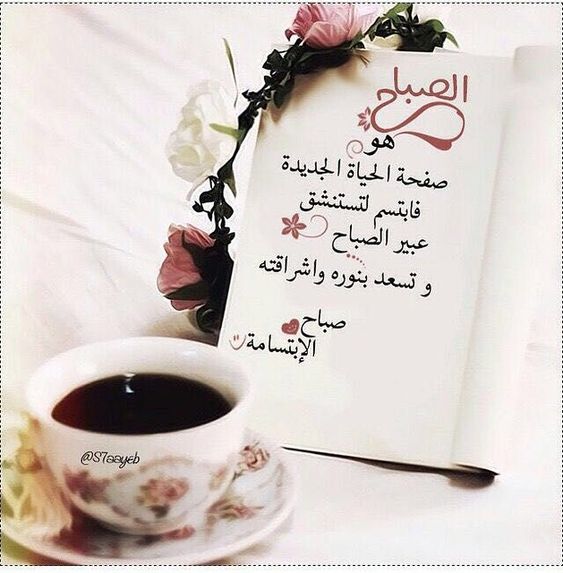 الصباح
هو
صفحة الحياة الجديدة
فابتسم لتستنشق
عبير الصباح
و تسعد بنوره واشراقته
صباح
الإبتسامة
@S7aayeb